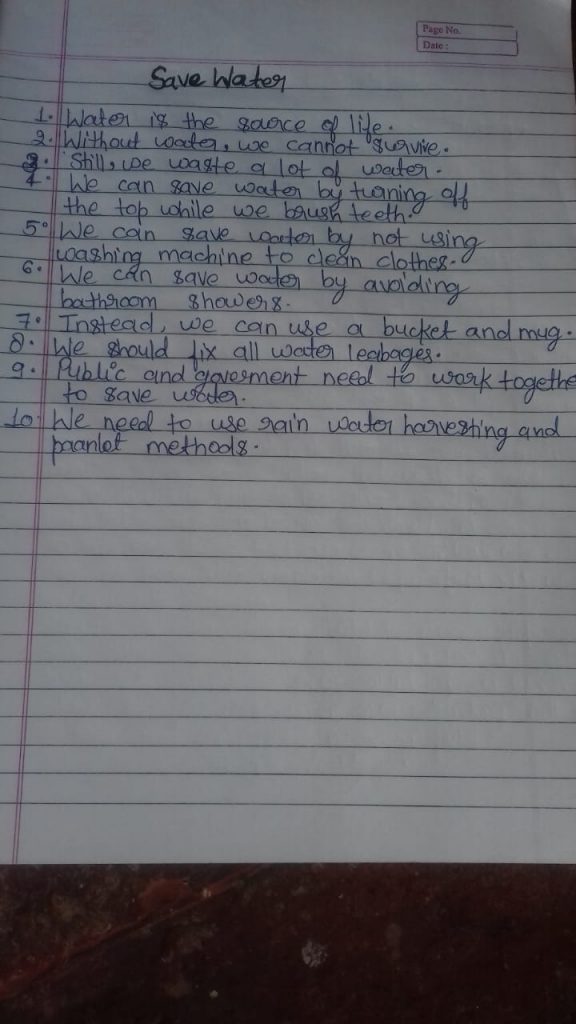 Page No.
Date :
Save Water
1. Water is the source of life.
2. Without water, we cannot survive.
3. Still, we waste a lot of water.
4. We can save water by turning off
the top while we brush teeth.
5. We can save water by not using
washing machine to clean clothes.
6. We can save water by avoiding
bathroom showers.
7. Instead, we can use a bucket and mug.
8. We should fix all water leabages.
9. Public and goverment need to work togethe
to save water.
10. We need to use rain water harvesting and
methods.